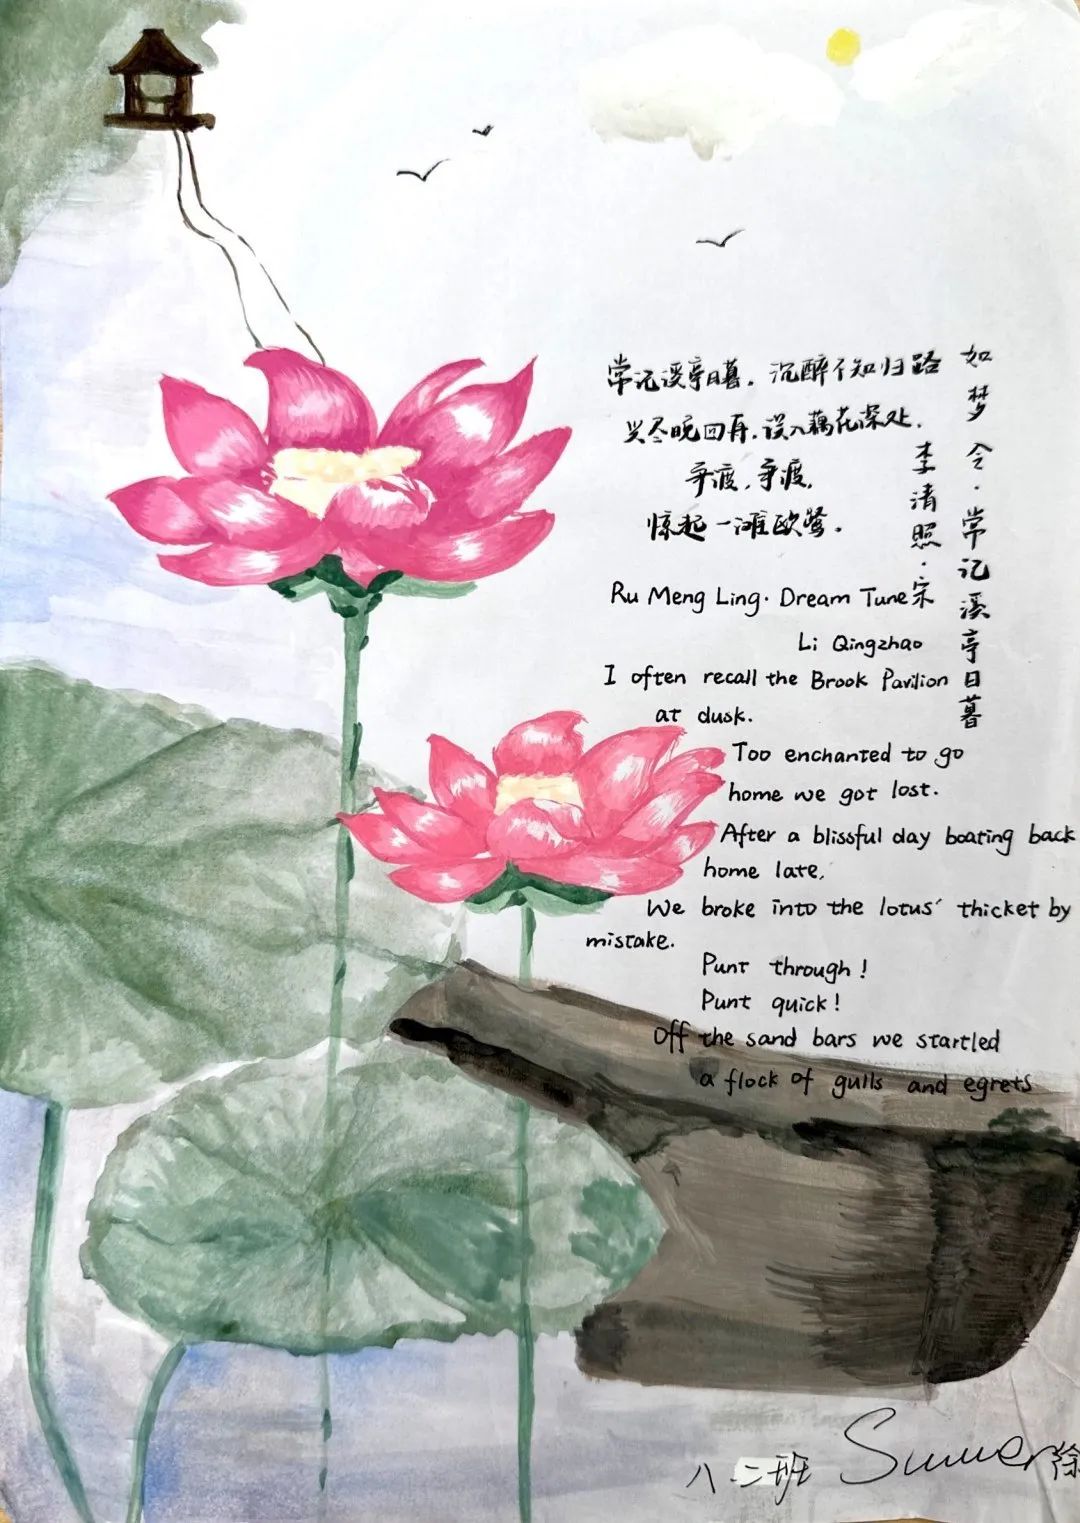 如梦令·常记溪亭日暮
李清照·宋
常记溪亭日暮，沉醉不知归路
兴尽晚回舟，误入藕花深处，
争渡，争渡，
惊起一滩欧鹭。
Ru Meng Ling· Dream Tune
Li Qingzhao
I often recall the Brook Pavilion
at dusk.
Too enchanted to go
home we got lost.
After a blissful day boating back
home late,
We broke into the lotus' thicket by
mistake.
Punt through!
Punt quick!
Off the sand bars we startled
a flock of gulls and egrets
八.二班 Summer